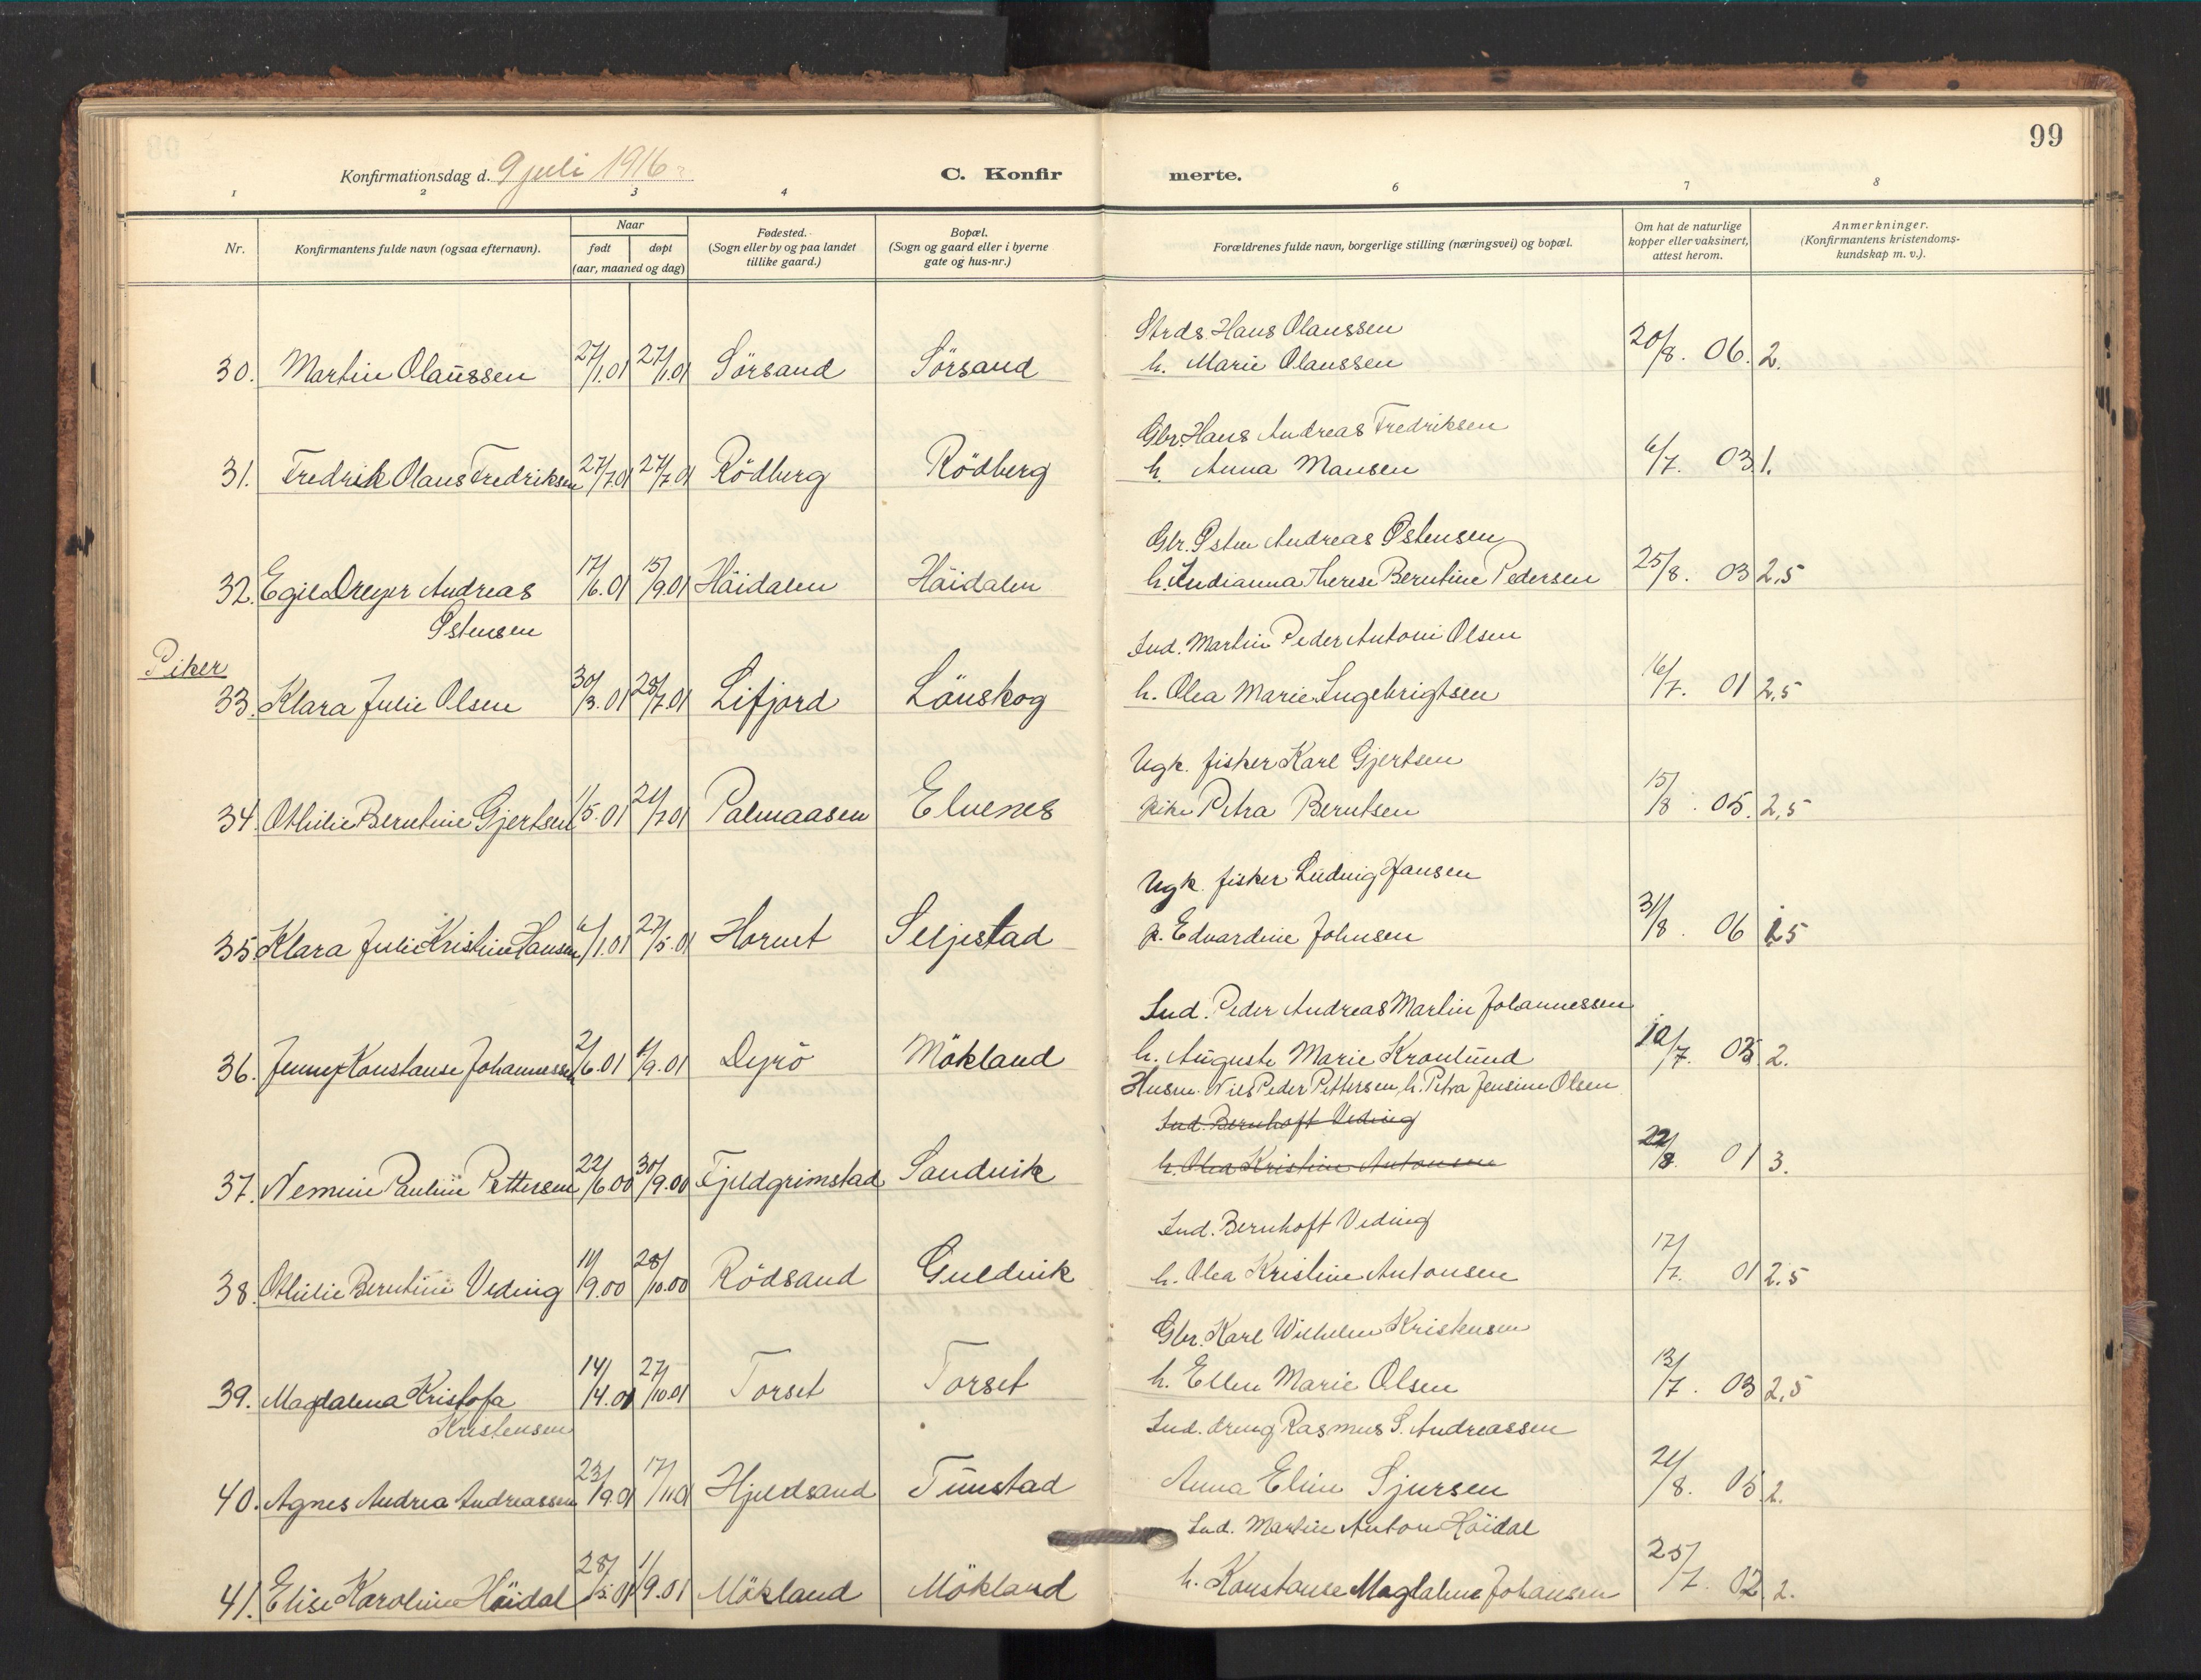 99
Konfirmationsdag d. 9 juli 1916
C. Konfirmerte.
1 2 3 4 6 7 8
Nr.
Konfirmantens fulde navn (ogsaa efternavn).
Naar
født
døpt
(aar, maaned og dag)
Fødested.
(Sogn eller by og paa landet
tillike gaard.)
Bopæl.
(Sogn og gaard eller i byerne
gate og hus-nr.)
Forældrenes fulde navn, borgerlige stilling (næringsvei) og bopæl.
Om hat de naturlige
kopper eller vaksinert,
attest herom.
Anmerkninger.
(Konfirmantens kristendoms-
kundskap m. v.).
Strds. Hans Olaussen
30. Martin Olaussen 27/1.01 27/1.01 Sörsand Sörsand h. Marie Olaussen 20/8. 06. 2.
Gbr. Hans Andreas Fredriksen
31. Fredrik Olaus Fredriksen 27/7.01 27/7.01 Rödberg Rödberg h. Anna Mansen 6/7. 03 1.
Gbr. Østen Andreas Østensen
32. Egil Dreyer Andreas 17/6.01 15/9.01 Häidalen Häidalen h. Indianna Therese Berntine Pedersen 25/8. 03 2,5
Østensen
Ind. Martin Peder Antoni Olsen
Piker
33. Klara Julie Olsen 30/3.01 28/7.01 Lifjord Länskog h. Olea Marie Ingebrigtsen 16/7. 01 2,5
Ugk. fisker Karl Gjertsen
34. Othilie Berntine Gjertsen 1/5.01 21/7.01 Palmaasen Elvenes pike Petra Berntsen 15/8. 05. 2,5
Ugk. fisker Ludvig Hansen
35. Klara Julie Kristine Hansen 6/1.01 27/5.01 Hornet Seljestad p. Edvardine Johnsen 31/8. 06 1.5
Ind. Peder Andreas Martin Johannessen
36. Jenny Konstanse Johannessen 2/6.01 1/9.01 Dyrö Mökland h. Auguste Marie Kronlund 10/7. 03 2.
Husm. Nils Peder Pettersen, h. Petra Jensine Olsen
Ind. Bernhoft Veding
37. Nemine Pauline Pettersen 22/6.00 30/9.00 Fjeldgrimstad Sandvik h. Olea Kristine Antonsen 22/8. 01 3.
Ind. Bernhoft Veding
38. Othilie Berntine Veding 11/9.00 28/10.00 Rödsand Guldvik h. Olea Kristine Antonsen 17/7. 01 2.5
Gbr. Karl Wilhelm Kristensen
39. Magdalena Kristofa 14/4.01 27/10.01 Torset Torset h. Ellen Marie Olsen 13/7. 03 2,5
Kristensen
Ind. dreng Rasmus S. Andreassen
40. Agnes Andrea Andreassen 23/9.01 17/11.01 Hjeldsand Tunstad Anna Eline Sjursen 21/8. 05 2.
Ind. Martin Anton Häidal
41. Elise Karoline Häidal 28/5.01 1/9.01 Mökland Mökland h. Konstanse Magdalene Johansen 25/7. 02. 2.